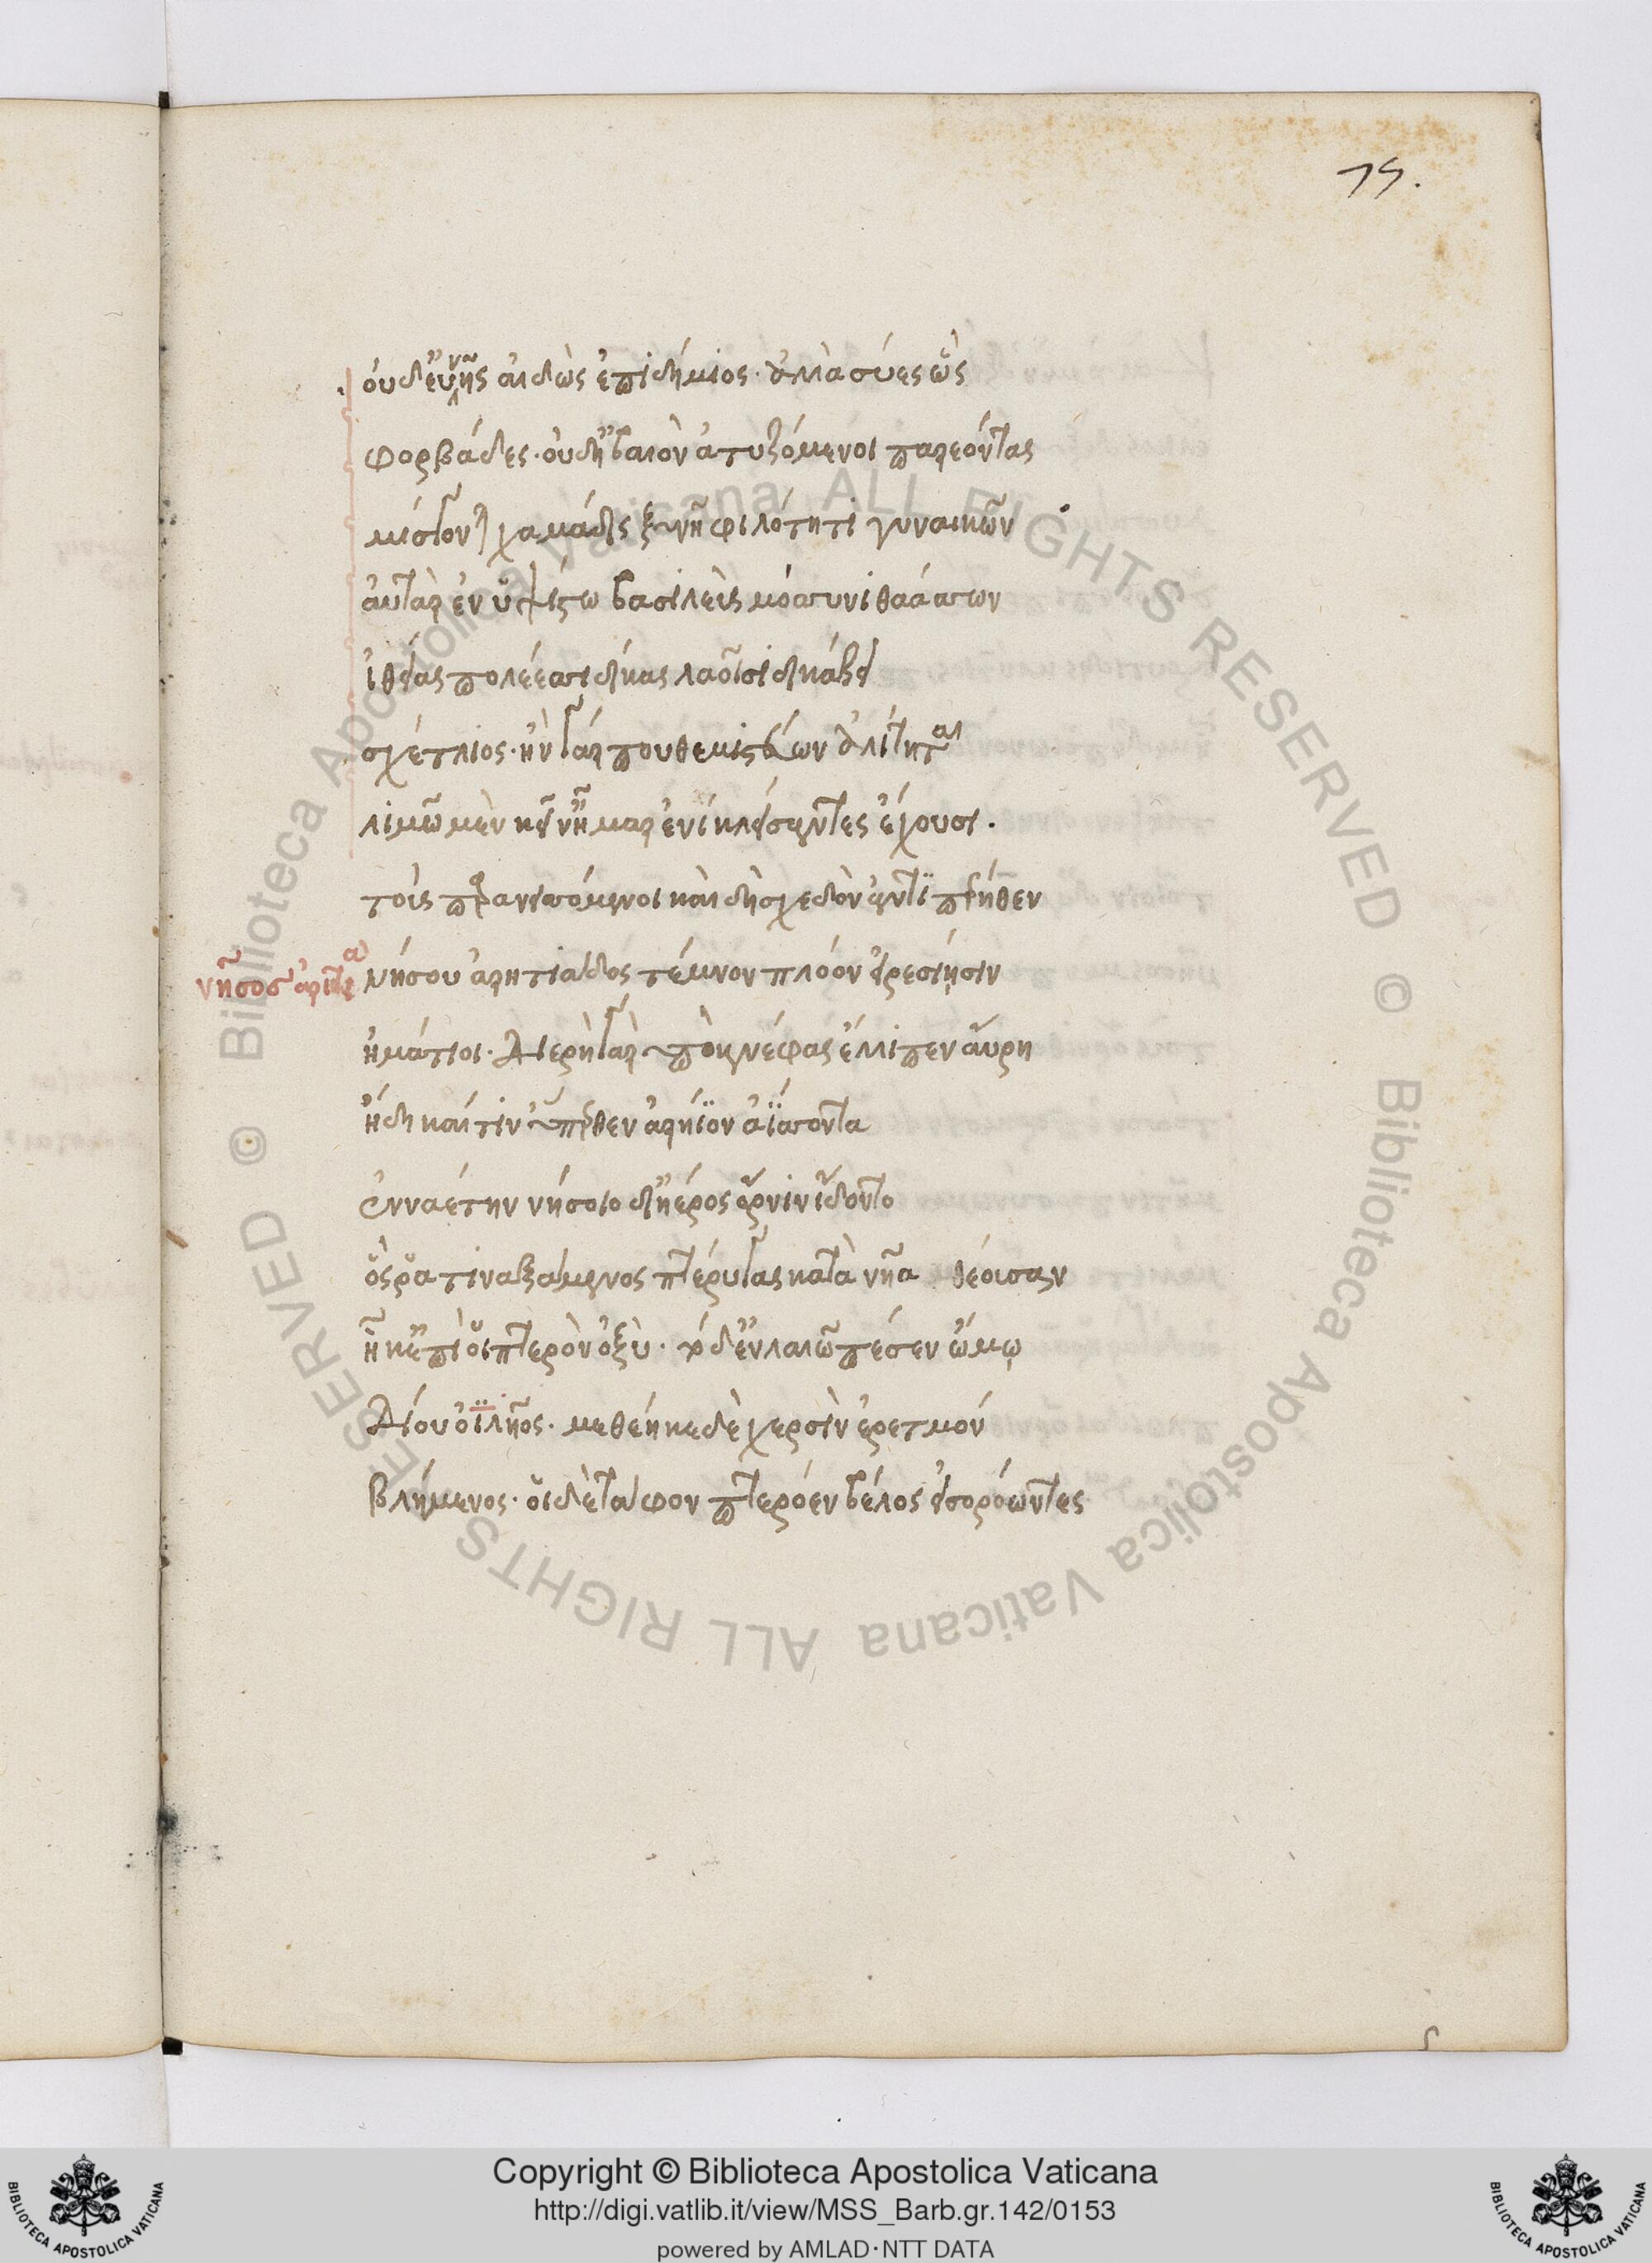 75.
οὐδ' εὐνῆς αἰδὼς ἐπιδήμιος· ἀλλὰ σύες ὣς
φορβάδες· οὐδ' ἠβαιὸν ἀτυζόμενοι παρεόντας
μίσγονται χαμάδις ξυνῇ φιλότητι γυναικῶν
αὐτὰρ ἐν ὑψίστω βασιλεὺς μόσσυνι θαάσσων
ἰθείας πολέεσσι δίκας λαοῖσι δικάζει
σχέτλιος· ἢν γάρ που θεμιστεύων ἀλίτηται
λιμῶ μὲν κεῖν' ἦμαρ ἐνικλείσαντες ἔχουσι.
τοὺς παρανισσόμενοι καὶ δὴ σχεδὸν ἀντιπέρηθεν
νῆσος ἀρητιὰς
νήσου ἀρητιάδος τέμνον πλόον εἰρεσίῃσιν
ἠμάτιοι· λιερὴ γὰρ ὑπὸ κνέφας ἔλλιπεν αὔρη
ἤδη καί τιν' ὕπερθεν ἀρήϊον ἀΐσσοντα
ἐνναέτην νήσοιο δι' ἠέρος ὄρνιν ἴδοντο
ὅς ῥα τιναξάμενος πτέρυγας κατὰ νῆα θέουσαν
ἧκ' ἐπὶ οἷ πτερὸν ὀξὺ· τὸ δ' ἐν λαιῶ πέσεν ὤμῳ
δίου ὀϊλῆος· μεθέηκε δὲ χερσὶν ἐρετμόν
βλήμενος· οἱ δὲ τάφον πτερόεν βέλος εἰσορόωντες
Biblioteca Apostolica Vaticana ALL RIGHTS RESERVED © Biblioteca Apostolica Vaticana ALL RIGHTS RESERVED ©
BIBLIOTECA APOSTOLICA VATICANA
Copyright © Biblioteca Apostolica Vaticana
http://digi.vatlib.it/view/MSS_Barb.gr.142/0153
powered by AMLAD·NTT DATA
BIBLIOTECA APOSTOLICA VATICANA